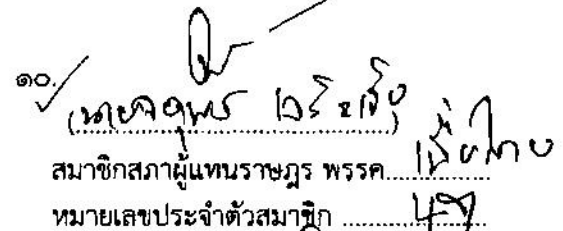 ๑๐.
(นายจตุพร เจริญเชื้อ)
สมาชิกสภาผู้แทนราษฎร พรรค เพื่อไทย
หมายเลขประจำตัวสมาชิก ๔๗